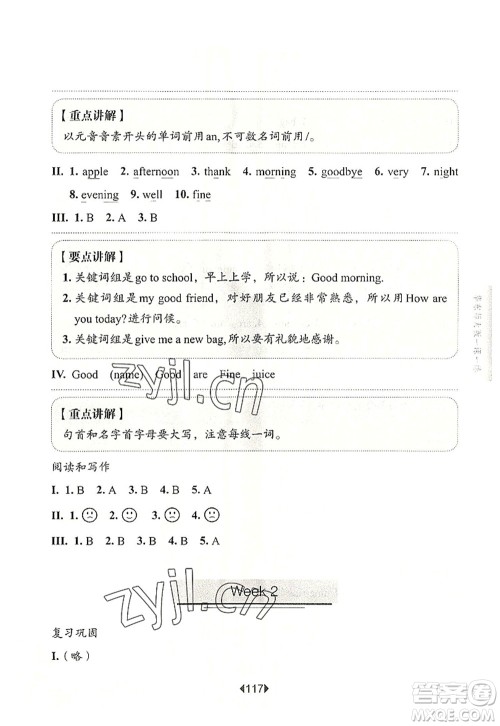 【重点讲解】
以元音音素开头的单词前用an,不可数名词前用/。
II. 1. apple 2. afternoon 3. thank 4. morning 5. goodbye 6. very 7. night
8. evening 9. well 10. fine
III. 1. B 2. A 3. B
【要点讲解】
1. 关键词组是go to school，早上上学，所以说：Good morning.
2. 关键词组是my good friend，对好朋友已经非常熟悉，所以用How are
you today?才更合适。
3. 关键词组是give me a new bag,所以要有礼貌地感谢。
IV. Good (name) Good are Fine juice
【重点讲解】
句首和名字首字母要大写，注意每线一词。
阅读和写作
I. 1. B 2. A 3. B 4. B 5. A
II. 1. 2. 3. 4. 5.
III. 1. B 2. A 3. B 4. B 5. A
zyjl.cn
Week 2
复习巩固
I.（略）
zyjl.cn
117
答案圈
MXQE.COM